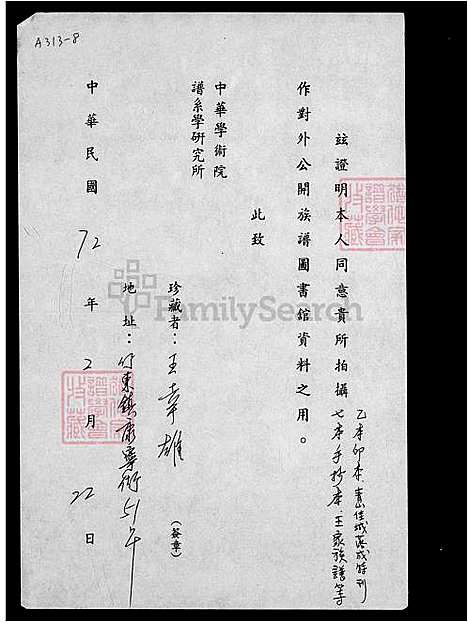 A313-8
茲證明本人同意貴所拍攝 乙本印本、青山佳城落成特刊
七本手抄本、王家族譜等
作對外公開族譜圖書館資料之用。
此致
中華學術院
譜系學研究所
珍藏者：王幸雄 (簽章)
地址：竹東鎮康寧街51
中華民國72年2月22日
FamilySearch